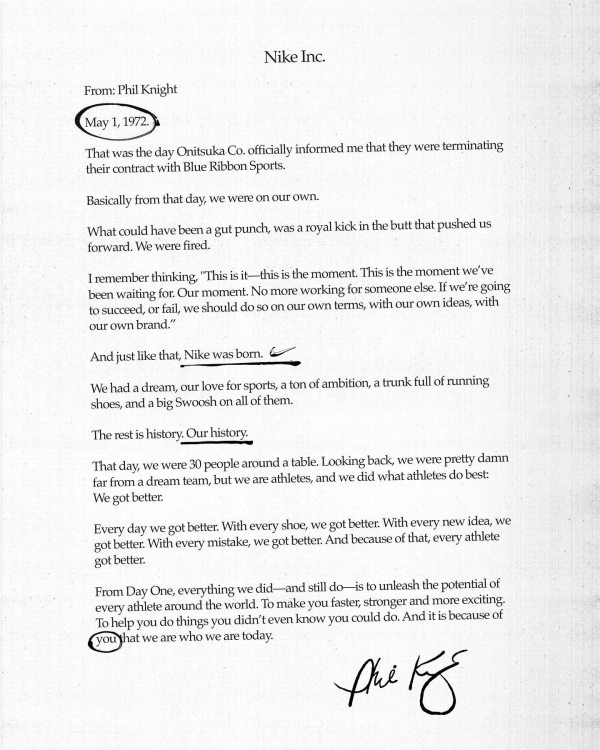 Nike Inc.
From: Phil Knight
May 1, 1972.
That was the day Onitsuka Co. officially informed me that they were terminating
their contract with Blue Ribbon Sports.
Basically from that day, we were on our own.
What could have been a gut punch, was a royal kick in the butt that pushed us
forward. We were fired.
I remember thinking, "This is it—this is the moment. This is the moment we've
been waiting for. Our moment. No more working for someone else. If we're going
to succeed, or fail, we should do so on our own terms, with our own ideas, with
our own brand."
And just like that, Nike was born.
We had a dream, our love for sports, a ton of ambition, a trunk full of running
shoes, and a big Swoosh on all of them.
The rest is history. Our history.
That day, we were 30 people around a table. Looking back, we were pretty damn
far from a dream team, but we are athletes, and we did what athletes do best:
We got better.
Every day we got better. With every shoe, we got better. With every new idea, we
got better. With every mistake, we got better. And because of that, every athlete
got better.
From Day One, everything we did—and still do—is to unleash the potential of
every athlete around the world. To make you faster, stronger and more exciting.
To help you do things you didn't even know you could do. And it is because of
you that we are who we are today.
Phil Knight